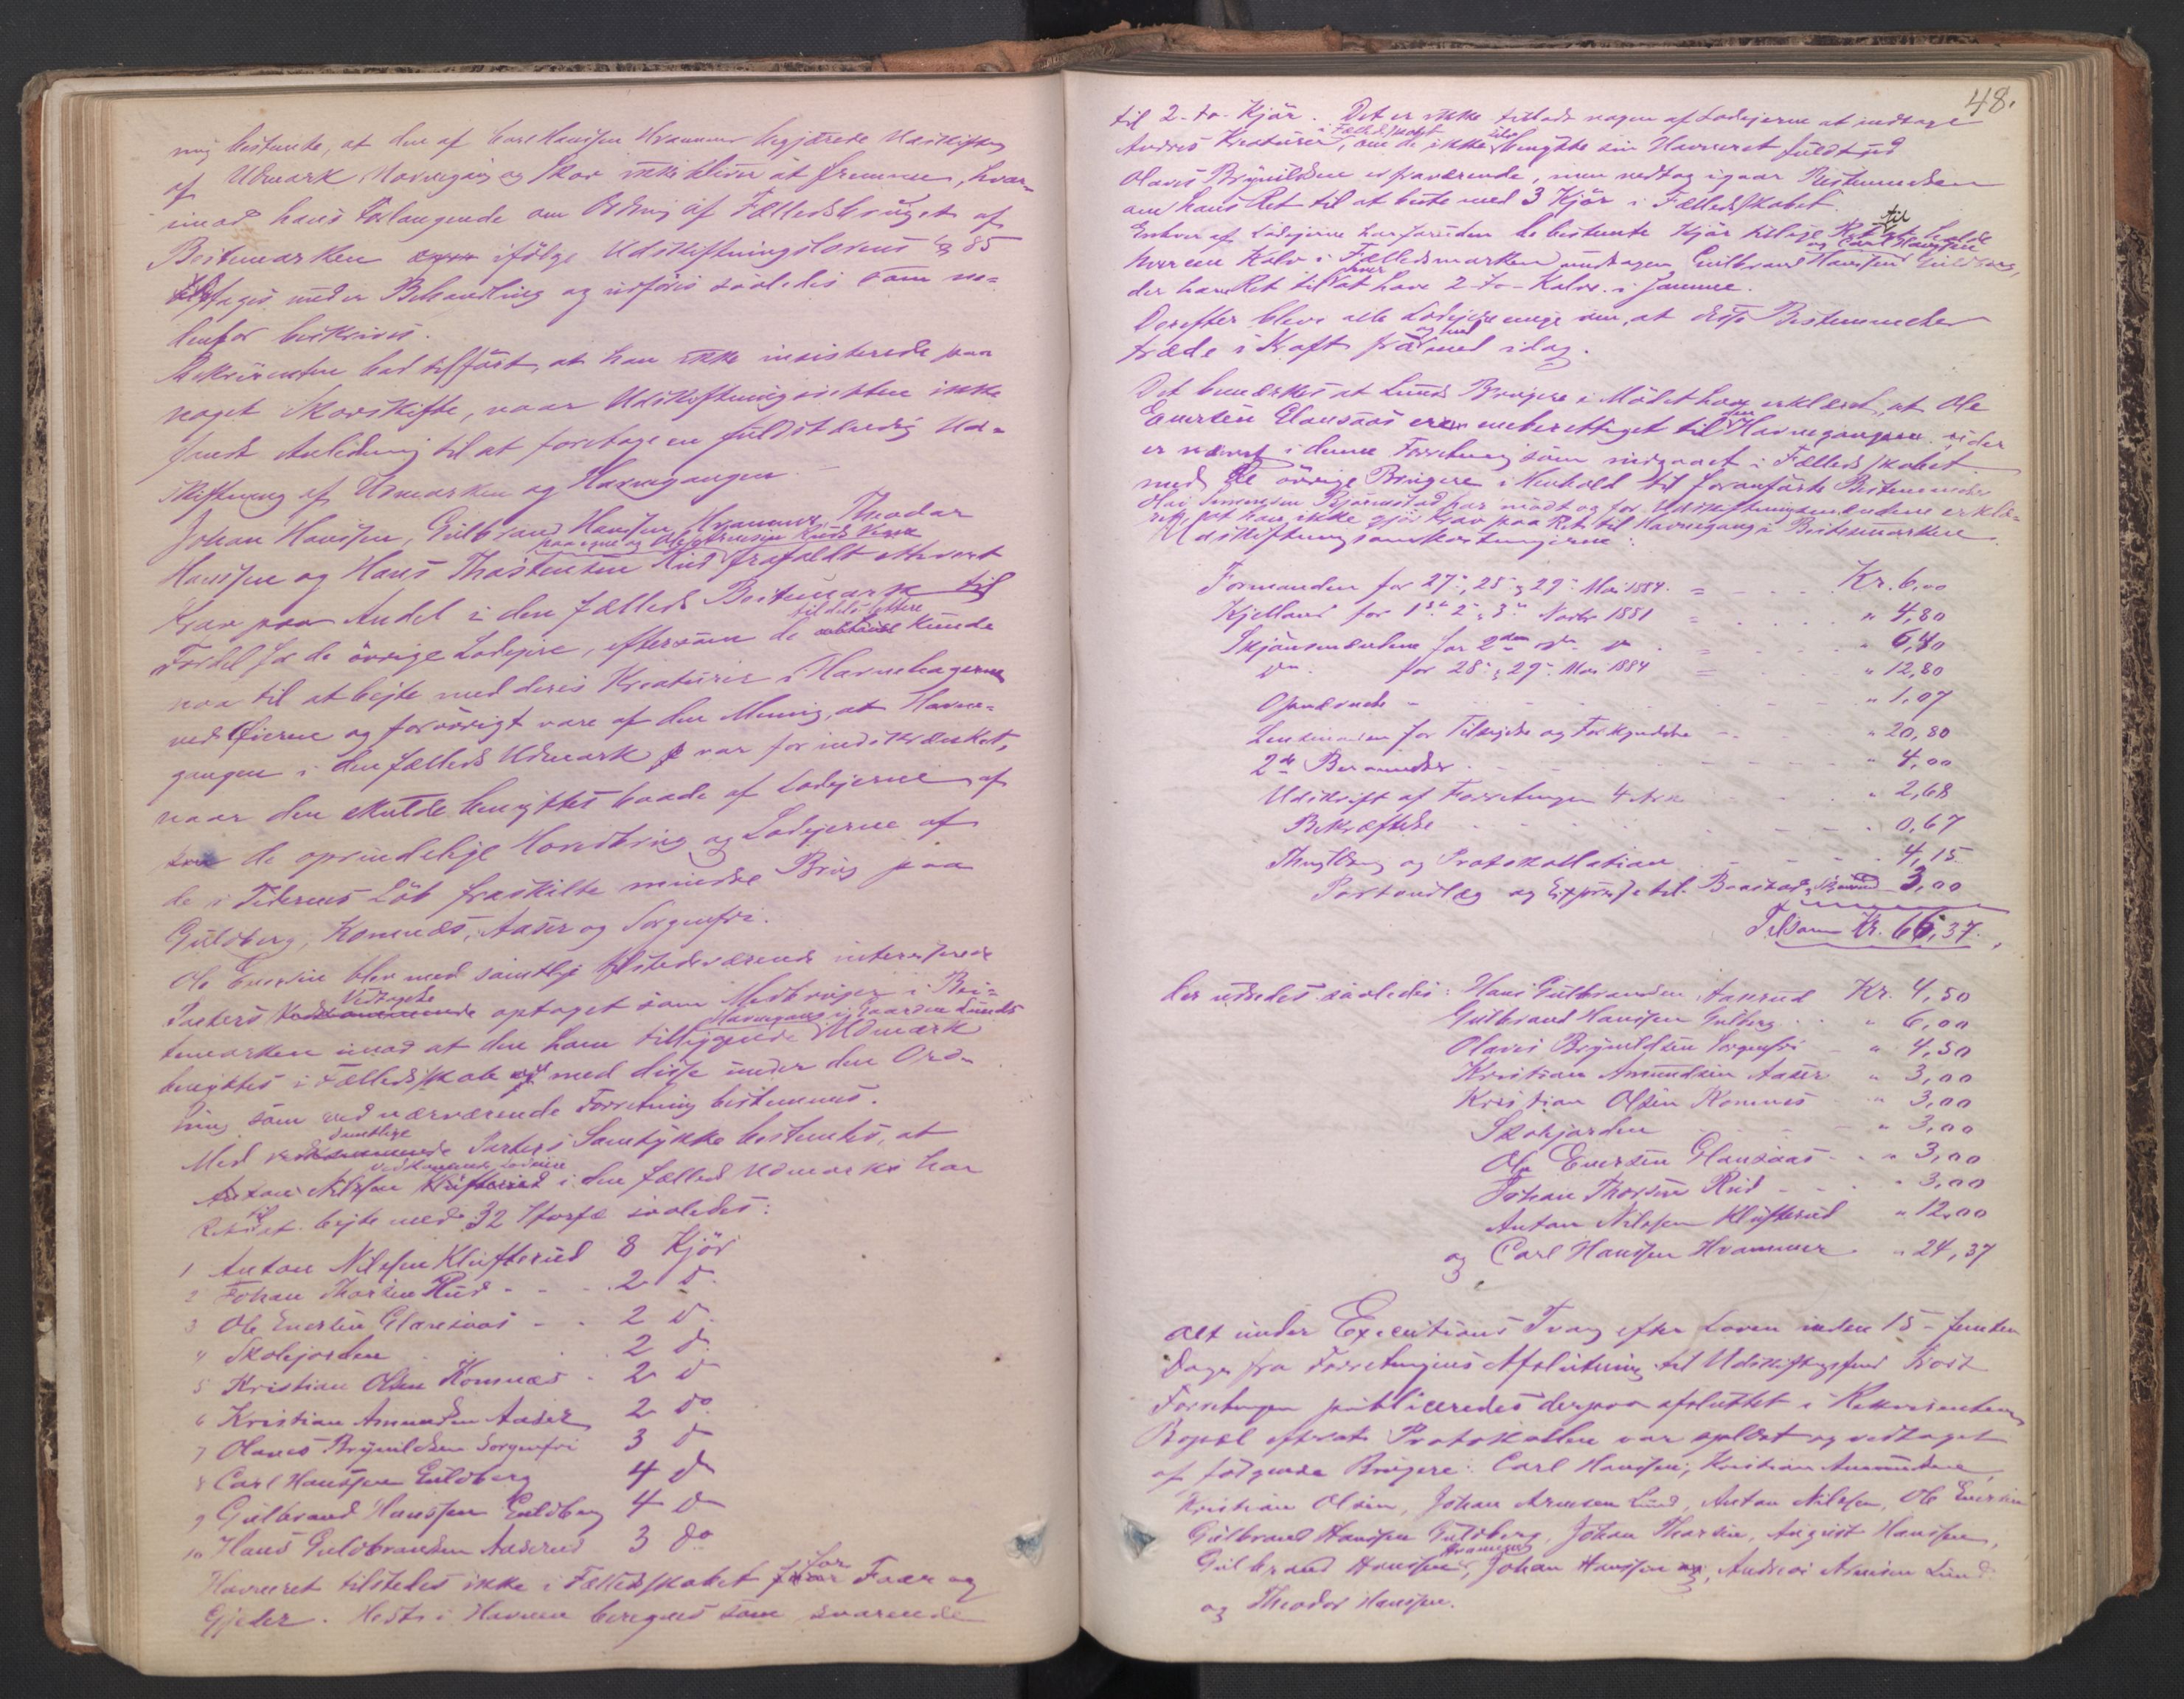 mig bestemte, at den af Carl Hanssen Hvammer begjærede Udskiftning
af Udmark Havnegang og Skov ikke bliver at fremme, hvor-
imod hans Forlangende om Ordning af Fælledsbruget af
Beitemarken ifölge Udskiftningslovens § 85
tages under Behandling og udföres saaledes som ne-
denfor beskrives.
Rekvirenten bad tilfört, at han ikke insisterede paa
noget Skovskifte, naar Udskiftningsretten ikke
fandt Anledning til at foretage en fuldstændig Ud-
skiftning af Udmarken og Havnegangen
Johan Hanssen, Gulbrand Hanssen Hvammer, Theodor
Hanssen og Hans Thostensen Rud frafaldt ethvert
Krav paa Andel i den fælleds Beitemark til
Fordel for de övrige Lodejere, eftersom de tildels lettere kunde
naa til at bejte med deres Kreaturer i Havnehagerne
ved Öierne og forövrigt vare af den Mening, at Havne-
gangen i den fælleds Udmark var for indskrænket,
naar den skulde benyttes baade af Lodejerne af
de oprindelige Hovedbrug og Lodejerne af
de i Tidernes Löb fraskilte mindre Brug paa
Guldberg, Komnæs, Aaser og Sorgenfri.
Ole Enersen blev med samtlige tilstedeværende interesserede
Parters Vedtagelse optaget som Medbruger i Bei-
temarken imod at den ham tilliggende Havnegang i Gaarden Lunds Udmark
benyttes i Fælledsskab med disse under den Ord-
ning som ved nærværende Forretning bestemmes.
Med samtlige Parters Samtykke bestemtes, at
vedkommende Lodeiere i den fælleds Udmark har
Ret til at bejte med 32 Storfæ saaledes:
1 Anton Nilssen Klufterud 8 Kjör
2 Johan Thorsen Rud - - - 2 do
3 Ole Enersen Glansaas - - 2 do
4 Skolejorden 2 do
5 Kristian Olsen Komnæs - 2 do
6 Kristian Amundsen Aaser 2 do
7 Olaves Brynildsen Sorgenfri 3 do
8 Carl Hanssen Guldberg 4 do
9 Gulbrand Hanssen Guldberg 4 do
10 Hans Guldbrandsen Aaserud 3 do
Havneret tilstedes ikke i Fælledsskabet for Faar og
Gjeder. Heste i Havnen beregnes som svarende
48.
til 2-to-Kjör. Det er ikke tilladt nogen af Lodejerne at indtage
Andres Kreaturer i Fælledsskabet, om de ikke selv benytte sin Havneret fuldt ud
Olaves Brynildsen er fraværende, men vedtog igaar Bestemmelsen
om hans Ret til at beite med 3 Kjör i Fælledsskabet.
Enhver af Lodejerne har foruden de bestemte Kjör tillige Ret til at holde
hver en Kalv i Fælledsmarken undtagen Gulbrand Hanssen og Carl Hanssen Guldberg,
der have Ret til hver at have 2-to-Kalve i samme.
Derefter bleve alle Lodejere enige om, at disse Bestemmelser
træde i Kraft fra og med idag.
Det bemærkes at Lunds Brugere i Mödet have erklæret, at Ole
Enersen Glansaas er meberettiget til den Havnegangen, der
er nævnt i denne Forretning som indgaaet i Fælledsskabet
med de övrige Brugere i Henhold til foranförte Bestemmelse
Udskiftningsomkostningerne:
Formanden for 27de, 28de og 29de Mai 1884. = - - Kr. 6,00
Kjelland for 1ste 2de 3de Novbr 1881 = . . . " 4,80
Skjönsmændene for 2den do do . = . . . " 6,40
do for 28de og 29de Mai 1884 = . . . " 12,80
Opnævnelse - . . . " 1,07
Lensmanden for Tilsigelse og Forkyndelse - - . " 20,80
2de Berammelser - - - " 4,00
Udskrift af Forretningen 4 Ark - - - " 2,68
Bekræftelse - - - " 0,67
Thinglæsning og Protokollation - - - " 4,15
Portoudlæg og Expresse til 3,00
Tilsam Kr. 66,37.
der udredes saaledes: Hans Gulbrandsen Aaserud Kr. 4,50
Gulbrand Hanssen Gulberg . . " 6,00
Olaves Brynildsen Sorgenfri - " 4,50
Kristian Amundsen Aaser " 3,00
Kristian Olsen Komnes " 3,00
Skolejorden - - - " 3,00
Ole Enersen Glansaas - " 3,00
Johan Thorsen Rud - - " 3,00
Anton Nilssen Klufterud " 12,00
og Carl Hanssen Hvammer . " 24,37
alt under Executions Tvang efter Loven inden 15 - femten
Dage fra Forretningens Afslutning til Udskiftningsformand
Forretningen publiceredes derpaa afsluttet i Rekvirentens
Bopæl efterat Protokollen var oplæst og vedtaget
af fölgende Brugere: Carl Hanssen, Kristian Amundsen,
Kristian Olsen, Johan Arnesen Lund, Anton Nilssen, Ole Enersen
Gulbrand Hanssen Guldberg, Johan Thorsen, August Hanssen,
Gulbrand Hanssen Hvammer, Johan Hanssen, Andreas Arnesen Lund
og Theodor Hanssen.